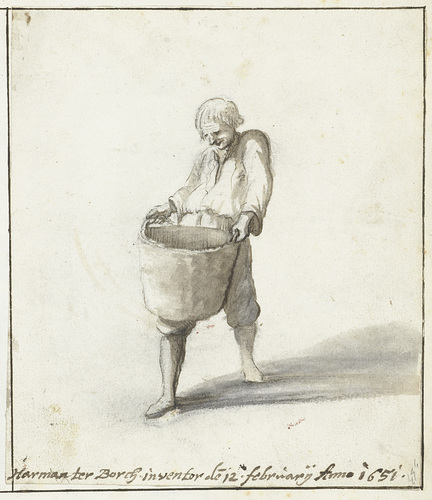 Harman ter Borch. inventor dē 12. februarij Anno 1651.